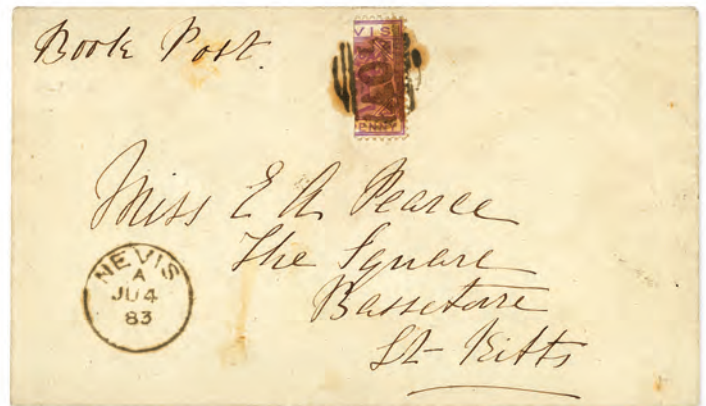 Book Post.
VIS
A09
PENNY
Miss E A Pearce
The Square
Bassetarre
St Kitts
NEVIS
A
JU 4
83